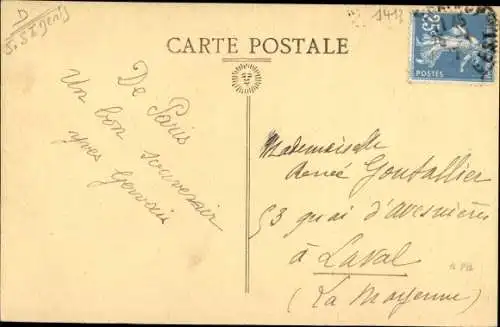 D
P. St Denis
1413
CARTE POSTALE
25c
POSTES
De Paris
Un bon souvenir
Yves Gervais
Mademoiselle
Renée Gontallier
53 quai d'avesnières
à Laval
(La Mayenne)